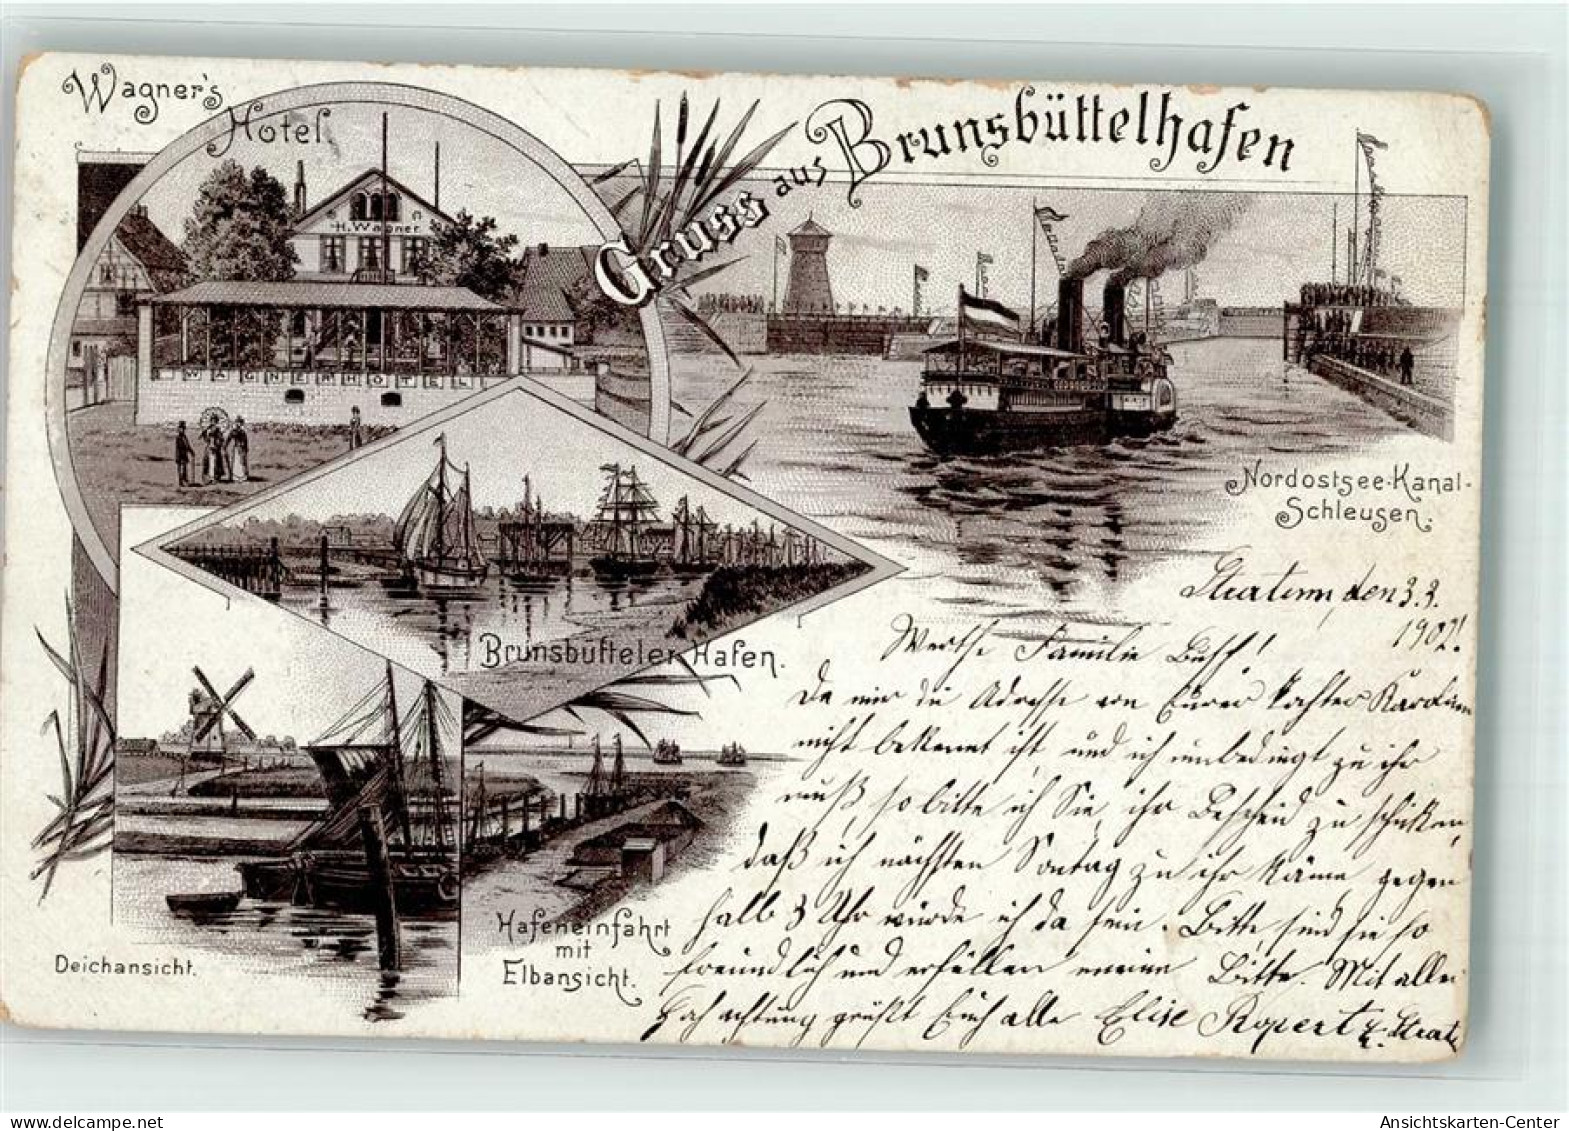 Wagner's
Hotel.
Gruss aus Brunsbüttelhafen
H. Wagner
WAGNER HOTEL
Nordostsee-Kanal-
Schleusen.
Brunsbütteler Hafen.
Deichansicht.
Hafeneinfahrt
mit
Elbansicht.
den 3.3.
1902!
Werthe Familie Busch!
Da mir die Adresse von Eurer Tochter Karoline
nicht bekannt ist, und ich unbedingt zu ihr
muß, so bitte ich Sie, ihr Bescheid zu schicken,
daß ich nächsten Sontag zu ihr käme gegen
halb 3 Uhr würde ich da sein. Bitte sind sie so
freundlich und erfüllen meine Bitte. Mit aller
Hochachtung grüßt Euch alle Elise Ropert
Ansichtskarten-Center